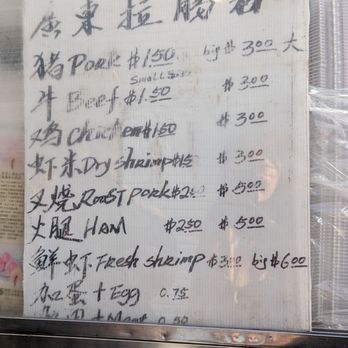 廣東拉腸粉
猪 Pork $1.50 big $ 3.00 大
Small
牛 Beef $1.50 $ 3.00
鸡 Chicken $1.50 $ 3.00
虾米 Dry shrimp $1.5 $ 3.00
叉烧 Roast Pork $2.50 $ 5.00
火腿 HAM $2.50 $ 5.00
鮮虾 Fresh shrimp $3.00 big $6.00
加蛋 + Egg 0.75
+ Meat 0.50